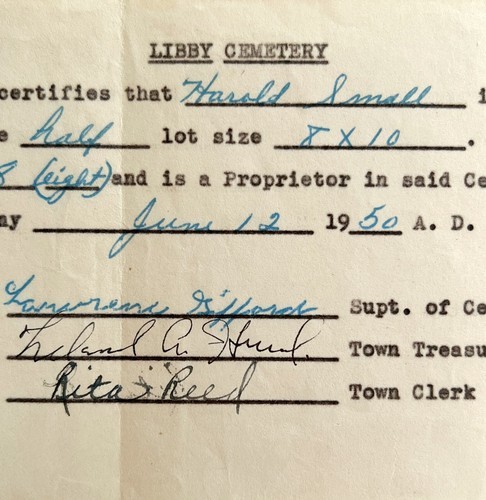 LIBBY CEMETERY
certifies that Harold Small
half lot size 8 X 10.
8 (eight) and is a Proprietor in said Ce
ny June 12 1950 A. D.
Lawrence Gifford Supt. of Ce
Leland A. Hunt. Town Treasu
Rita Reed Town Clerk